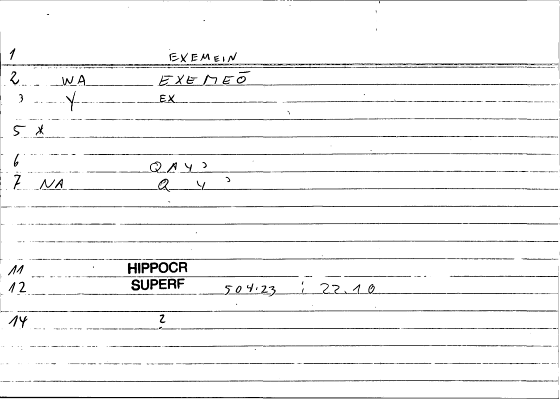 1 EXEMEIN
2 WA EXEMEŌ
3 Y EX
5 X
6 QAY
7 NA Q Y
11 HIPPOCR
12 SUPERF 504.23 ; 22.10
14 2